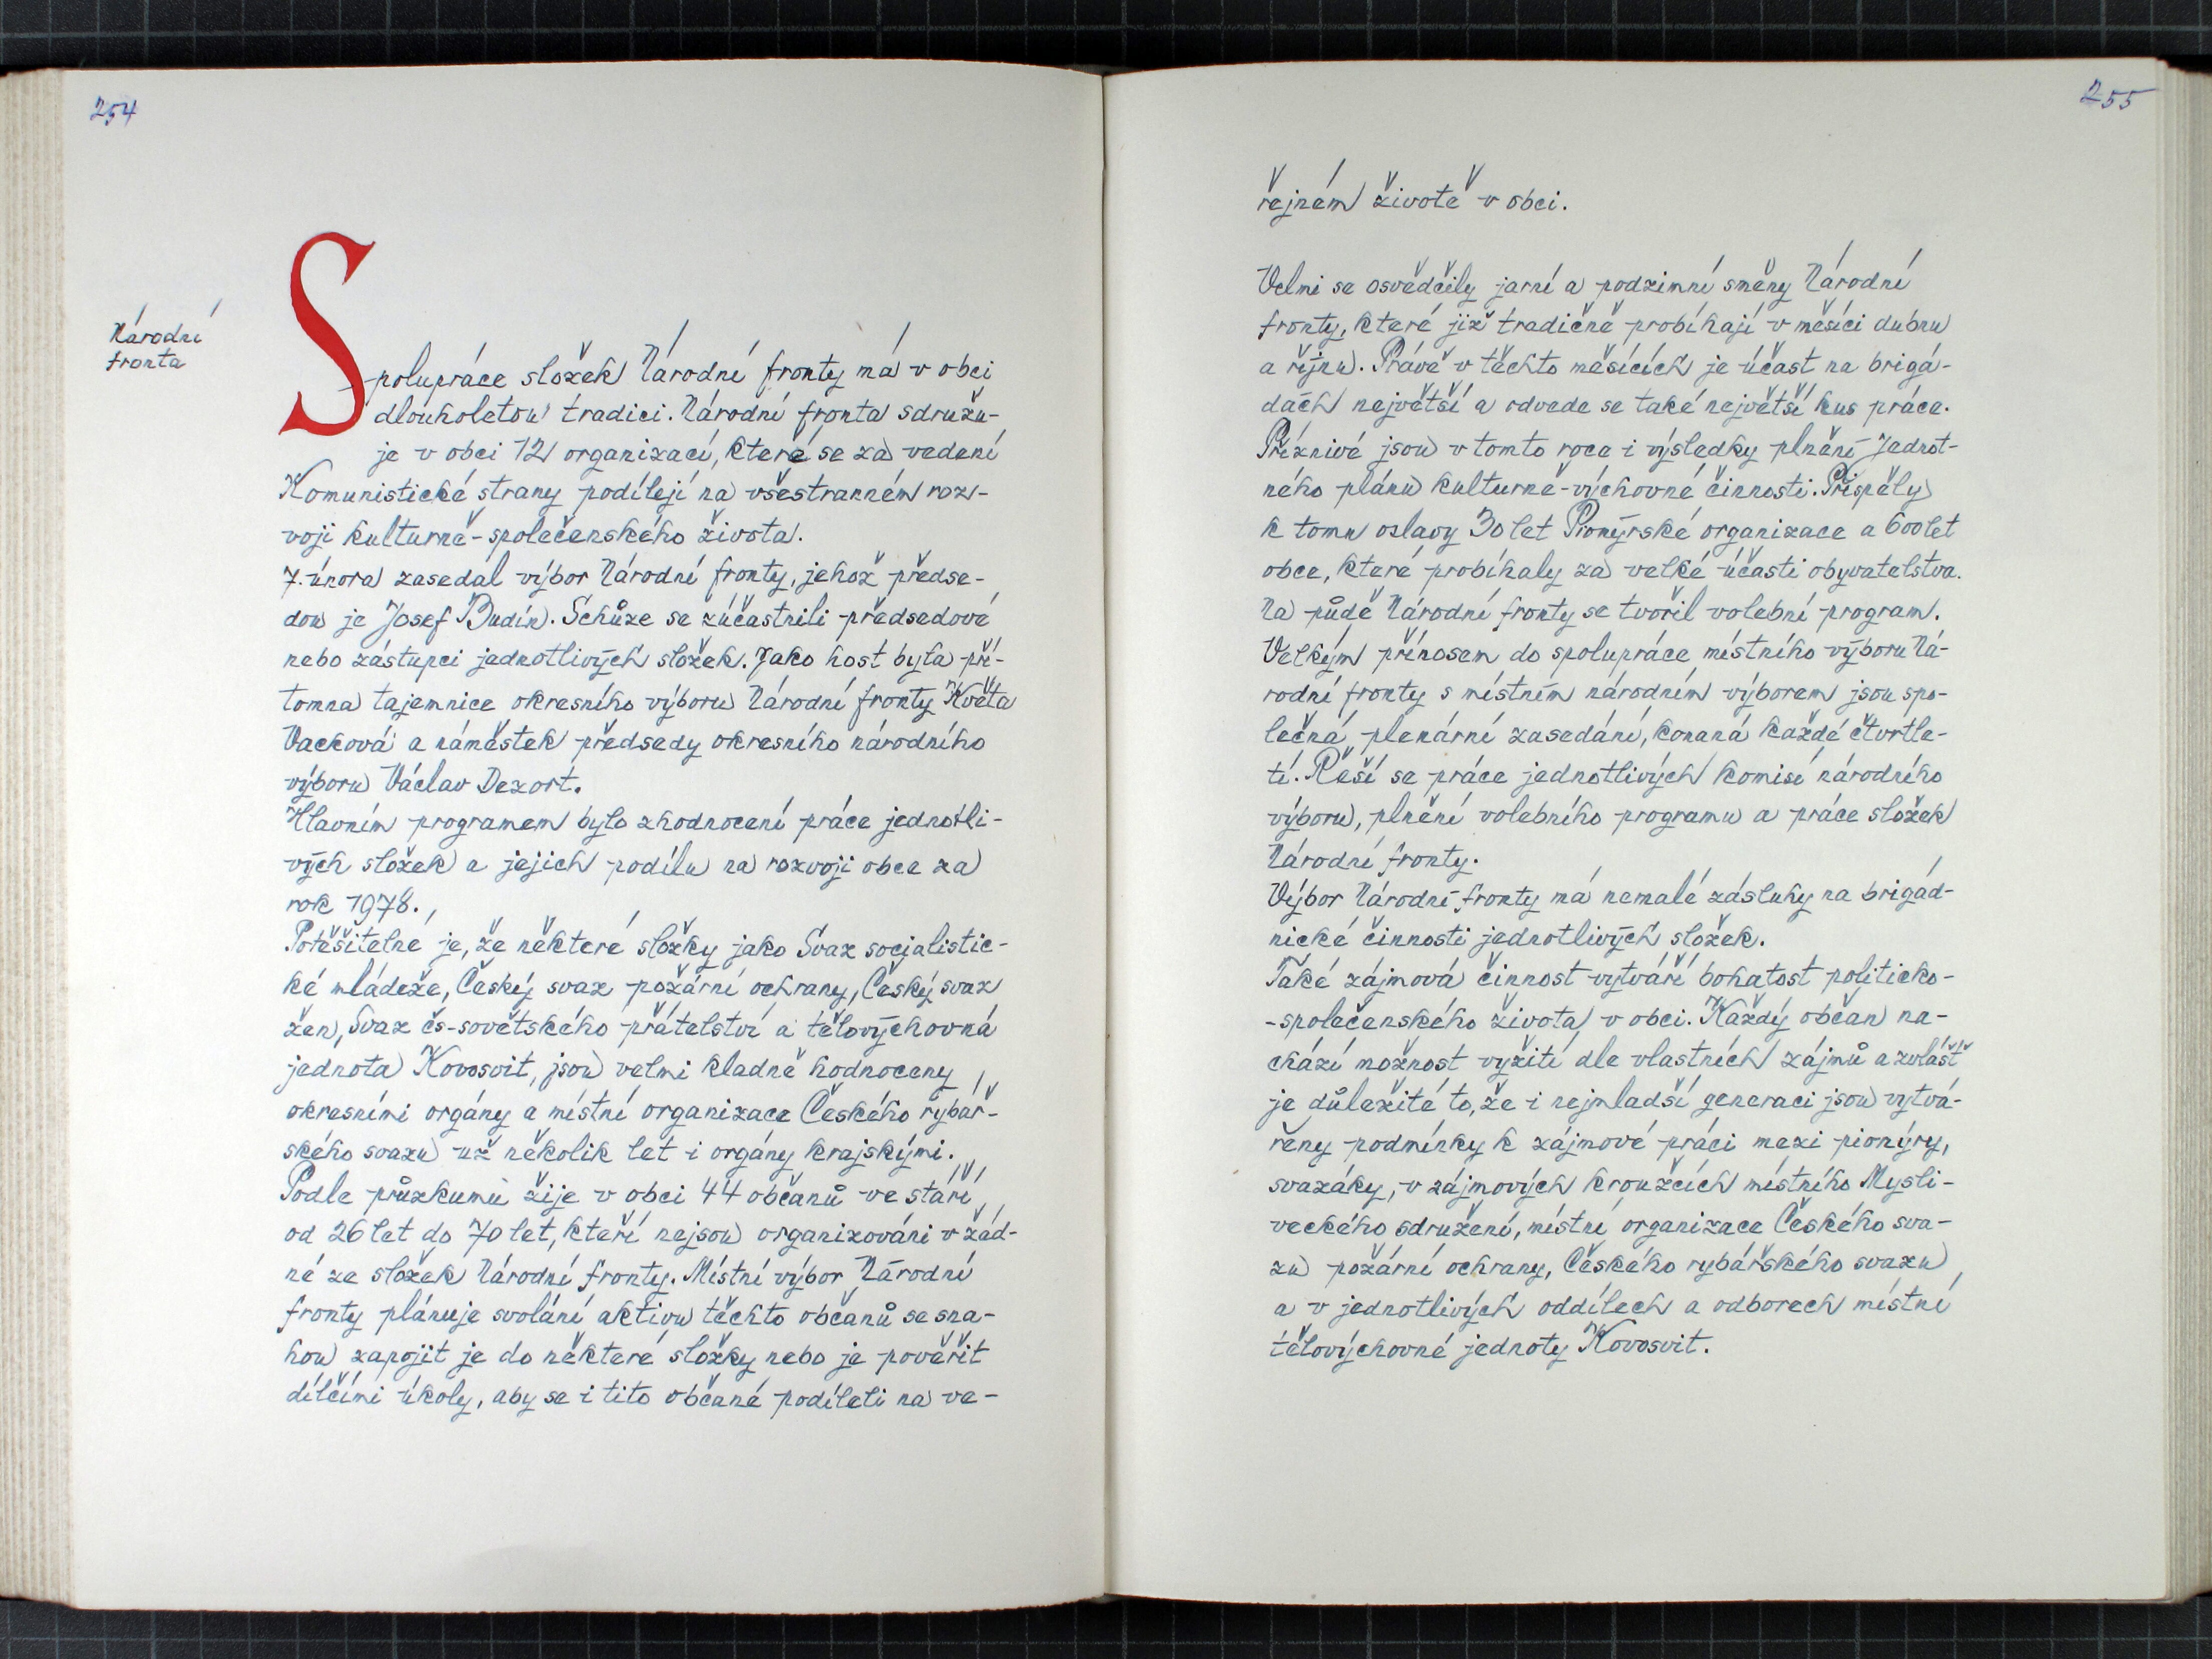 254
Národní
fronta
Spolupráce složek Národní fronty má v obci
dlouholetou tradici. Národní fronta sdružu-
je v obci 12 organizací, které se za vedení
Komunistické strany podílejí na všestranném roz-
voji kulturně-společenského života.
7. února zasedal výbor Národní fronty, jehož předse-
dou je Josef Budín. Schůze se zúčastnili předsedové
nebo zástupci jednotlivých složek. Jako host byla pří-
tomna tajemnice okresního výboru Národní fronty Květa
Vacková a náměstek předsedy okresního národního
výboru Václav Dezort.
Hlavním programem bylo zhodnocení práce jednotli-
vých složek a jejich podílu na rozvoji obce za
rok 1978.
Potěšitelné je, že některé složky jako Svaz socialistic-
ké mládeže, Český svaz požární ochrany, Český svaz
žen, Svaz čs-sovětského přátelství a tělovýchovná
jednota Kovosvit, jsou velmi kladně hodnoceny
okresními orgány a místní organizace Českého rybář-
ského svazu už několik let i orgány krajskými.
Podle průzkumu žije v obci 44 občanů ve stáří
od 26 let do 70 let, kteří nejsou organizováni v žád-
né ze složek Národní fronty. Místní výbor Národní
fronty plánuje svolání aktivu těchto občanů se sna-
hou zapojit je do některé složky nebo je pověřit
dílčími úkoly, aby se i tito občané podíleli na ve-
255
řejném životě v obci.
Velmi se osvědčily jarní a podzimní směny Národní
fronty, které již tradičně probíhají v měsíci dubnu
a říjnu. Právě v těchto měsících je účast na brigá-
dách největší a odvede se také největší kus práce.
Příznivé jsou v tomto roce i výsledky plnění Jednot-
ného plánu kulturně-výchovné činnosti. Přispěly
k tomu oslavy 30 let Pionýrské organizace a 600 let
obce, které probíhaly za velké účasti obyvatelstva.
Na půdě Národní fronty se tvořil volební program.
Velkým přínosem do spolupráce místního výboru Ná-
rodní fronty s místním národním výborem jsou spo-
lečná plenární zasedání, konaná každé čtvrtle-
tí. Řeší se práce jednotlivých komisí národního
výboru, plnění volebního programu a práce složek
Národní fronty.
Výbor Národní fronty má nemalé zásluhy na brigád-
nické činnosti jednotlivých složek.
Také zájmová činnost vytváří bohatost politicko-
-společenského života v obci. Každý občan na-
chází možnost vyžití dle vlastních zájmů a zvlášť
je důležité to, že i nejmladší generaci jsou vytvá-
řeny podmínky k zájmové práci mezi pionýry,
svazáky, v zájmových kroužcích místního Mysli-
veckého sdružení, místní organizace Českého sva-
zu požární ochrany, Českého rybářského svazu
a v jednotlivých oddílech a odborech místní
tělovýchovné jednoty Kovosvit.